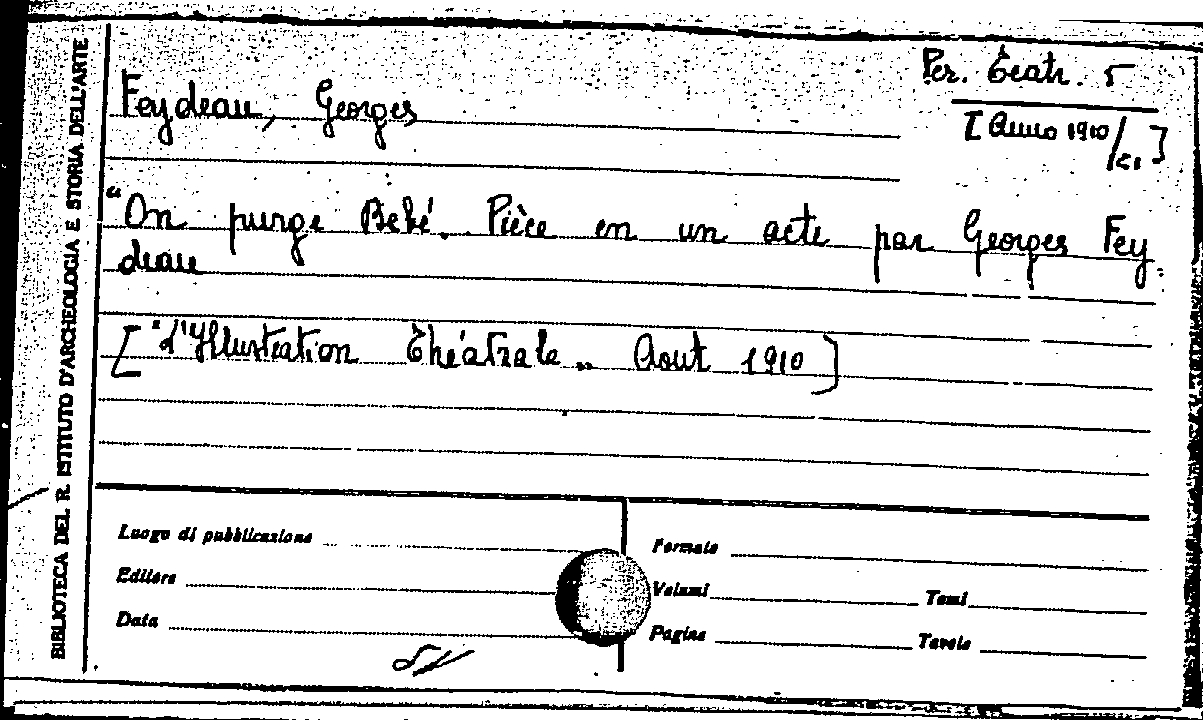 BIBLIOTECA DEL R. ISTITUTO D'ARCHEOLOGIA E STORIA DELL'ARTE
Per. Teatr. 5
Feydeau, Georges
[Anno 1910/
"On purge Bebé. Pièce en un acte par Georges Fey
deau
["L'Illustration Théâtrale„ Aout 1910]
Luogo di pubblicazione
Formato
Editore
Volumi
Tomi
Data
Pagine
Tavole